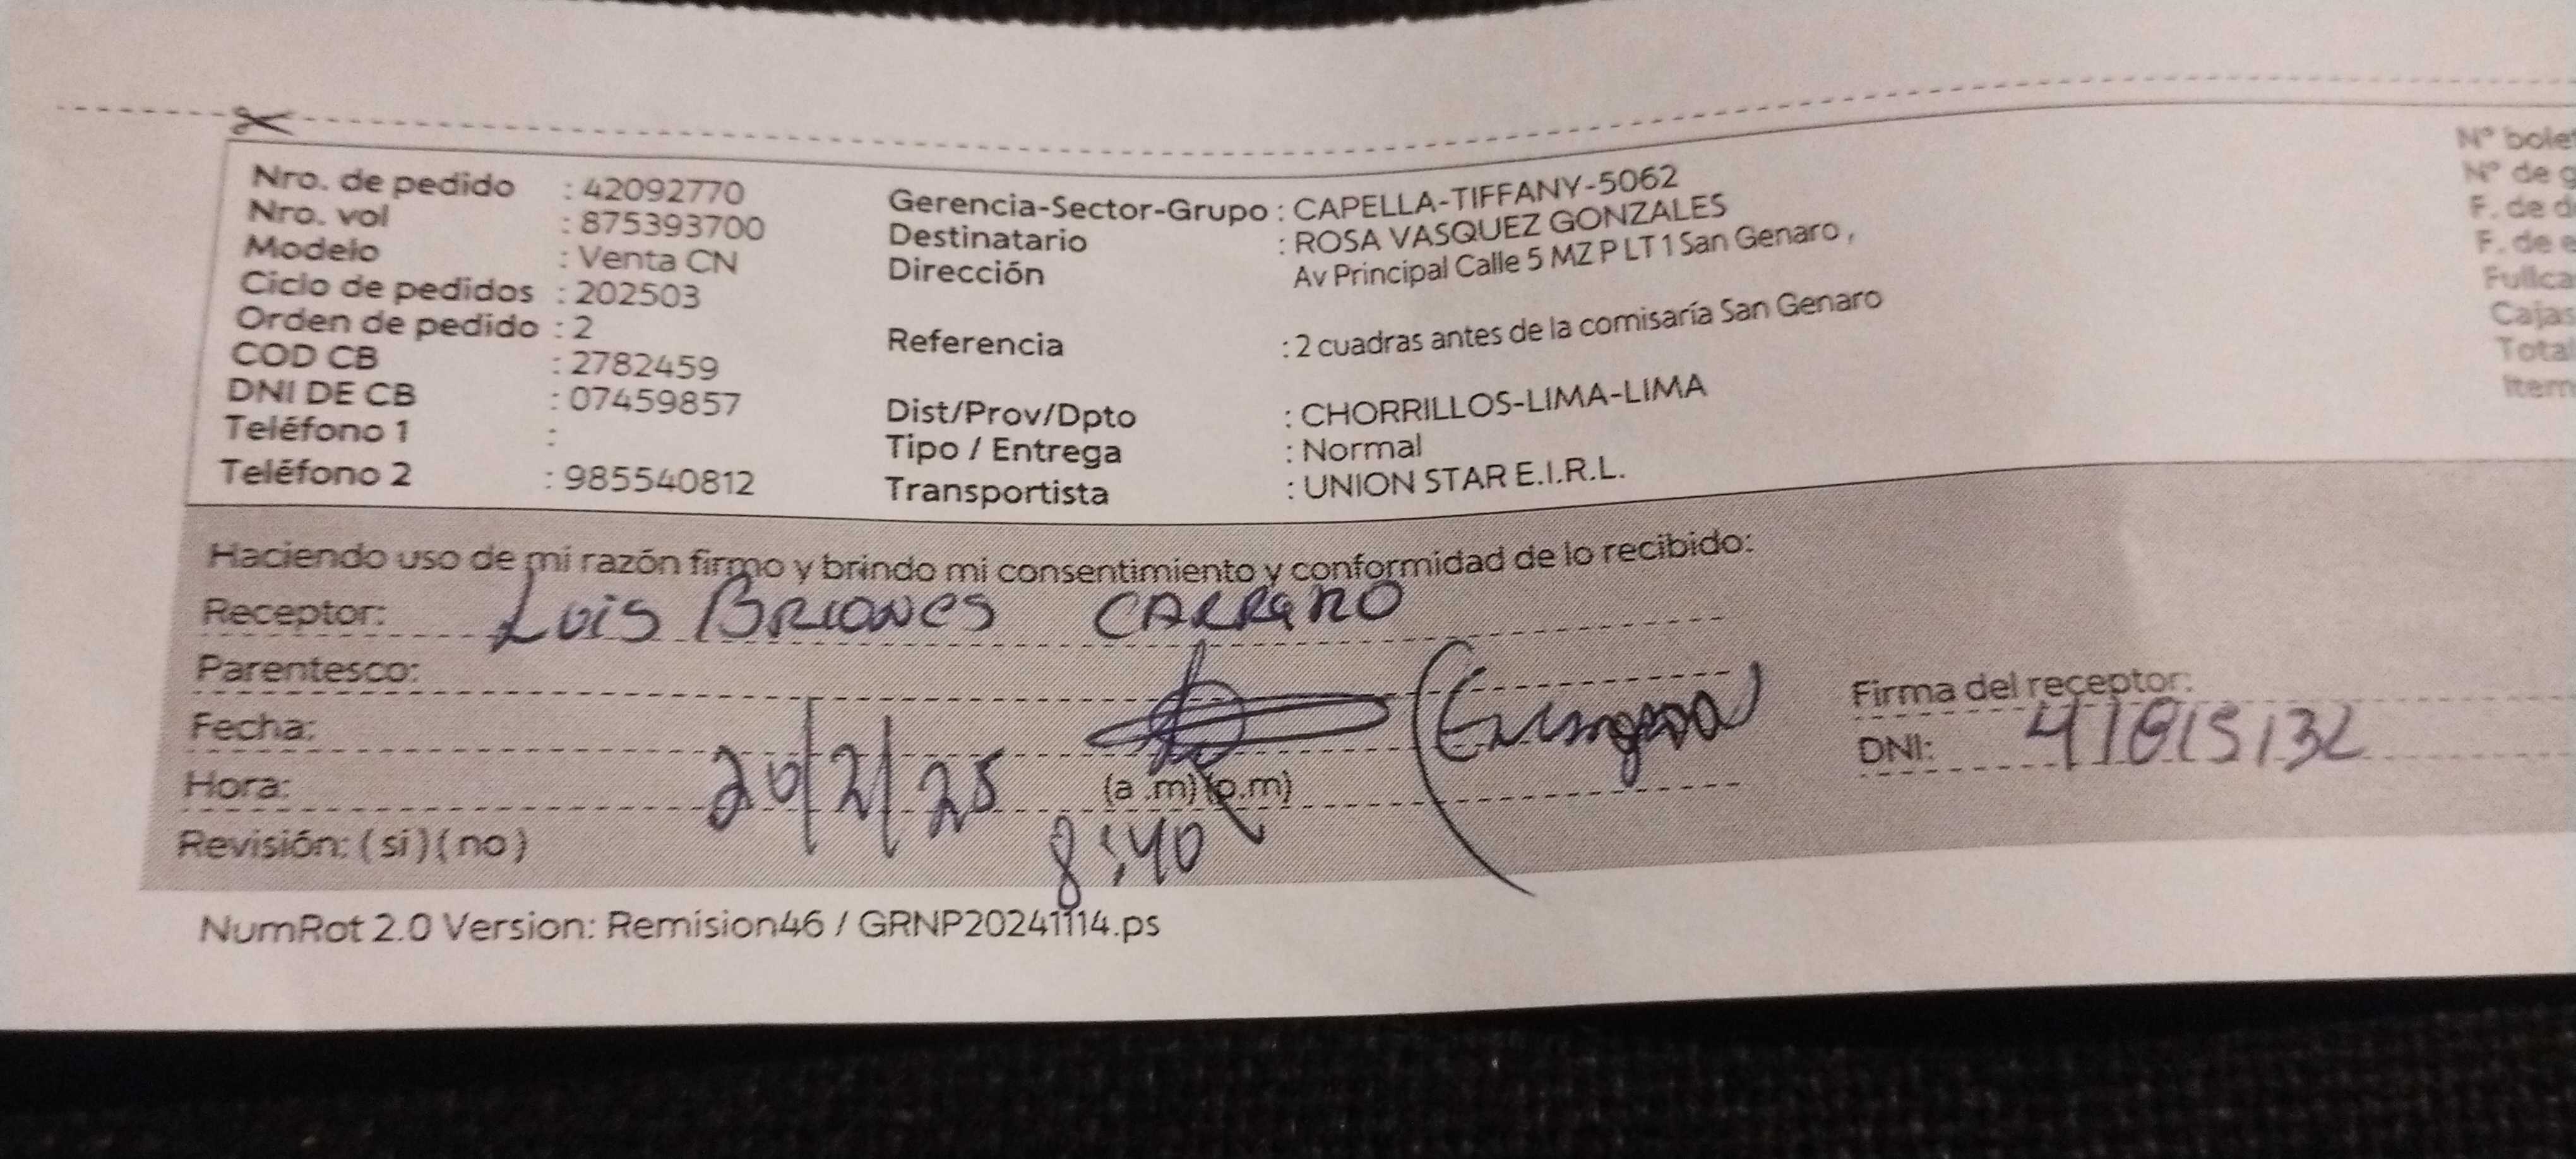 Nro. de pedido : 42092770
Nro. vol : 875393700
Modelo : Venta CN
Ciclo de pedidos : 202503
Orden de pedido : 2
COD CB : 2782459
DNI DE CB : 07459857
Teléfono 1 :
Teléfono 2 : 985540812
Gerencia-Sector-Grupo : CAPELLA-TIFFANY-5062
Destinatario : ROSA VASQUEZ GONZALES
Dirección Av Principal Calle 5 MZ P LT 1 San Genaro ,
Referencia : 2 cuadras antes de la comisaría San Genaro
Dist/Prov/Dpto : CHORRILLOS-LIMA-LIMA
Tipo / Entrega : Normal
Transportista : UNION STAR E.I.R.L.
N° bole
N° de g
F. de d
F. de e
Fullca
Cajas
Total
Item
Haciendo uso de mi razón firmo y brindo mi consentimiento y conformidad de lo recibido:
Receptor: Luis BRIONES
Parentesco:
Fecha: 20/2/25
Hora: (a .m)(p.m) 8:40
Revisión: ( si ) ( no )
Firma del receptor:
DNI:
NumRot 2.0 Version: Remision46 / GRNP20241114.ps